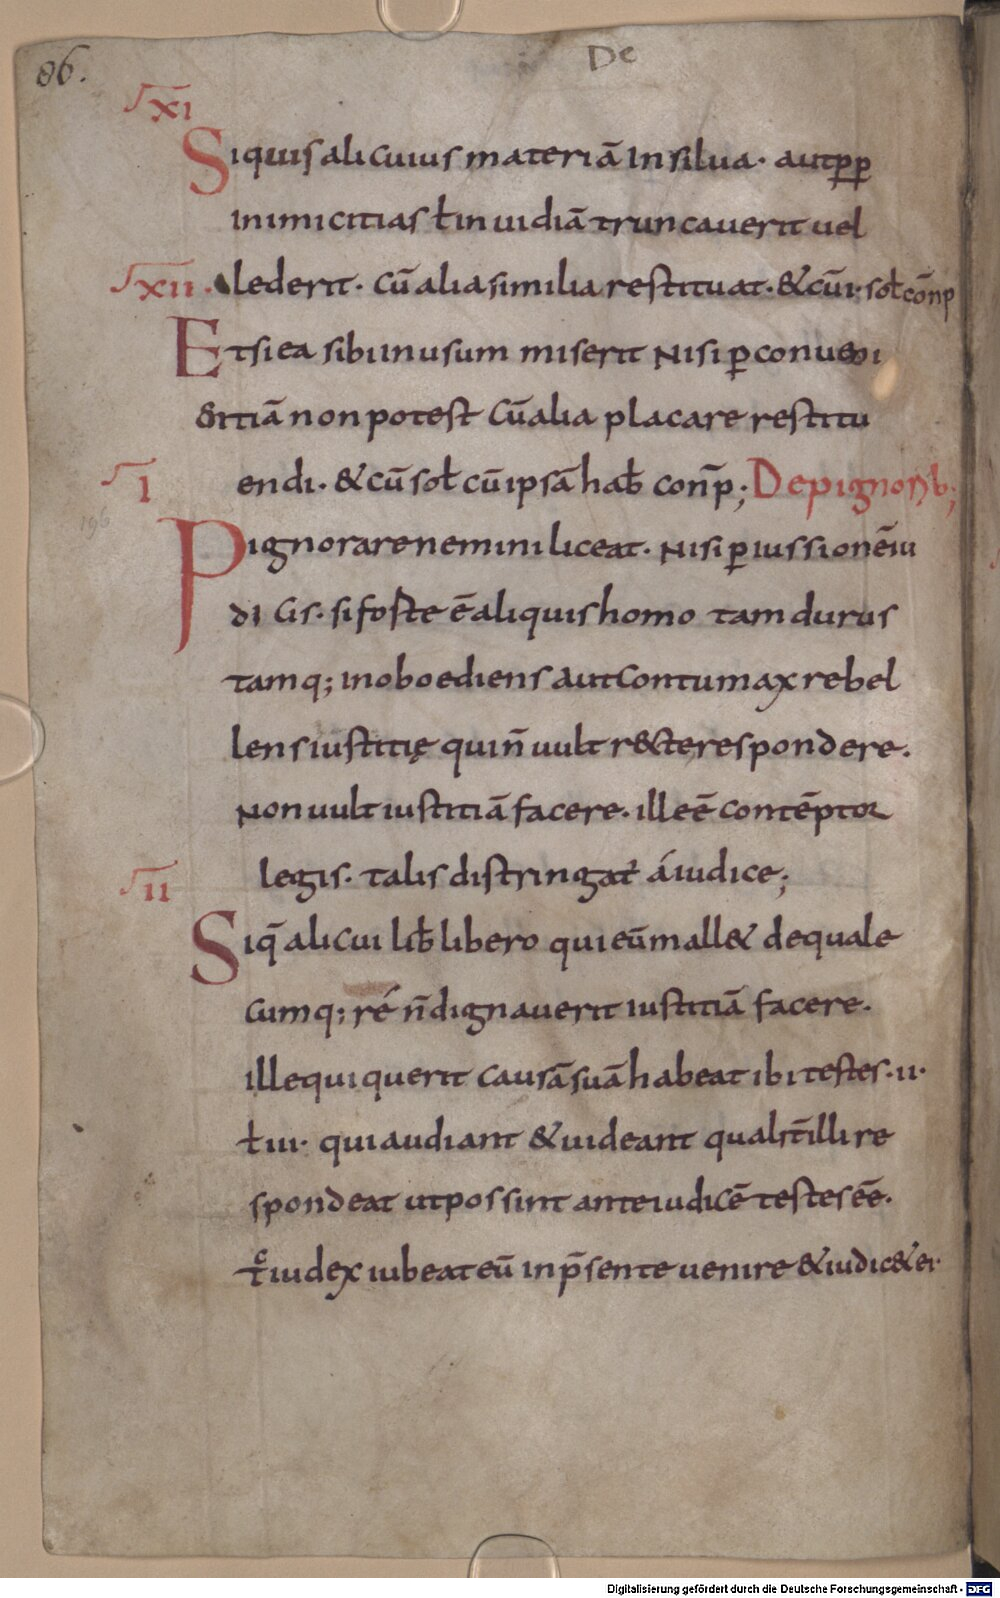 86.
De
XI
Siquis alicuius materiā in silua· aut pꝑ
inimicitias ł inuidiā truncauerit uel
XII · lederit· Cū alia similia restituat· & cū ·I· soł cōnp
Et si ea sibi in usum miserit Nisi ꝑ conueni
entiā non potest Cū alia placare restitu
I endi· & cū soł cū ipsā hab̄ con̄p; De pignorib;
196
Pignorare nemini liceat· Nisi ꝑ iussionē iu
dicis· si foste ē aliquis homo tam durus
tamq; inoboediens aut contumax rebel
lens iustitię qui n̄ uult r&te respondere.
Non uult iustitiā facere· ille ē contēptor
legis· talis distringat᷑ á iudice;
II
Si q̄ alicui lib̄ libero qui eū mall& de quale
cumq; ré n̄ dignauerit iustitiā facere.
ille qui querit causā suā habeat ibi testes·II·
ł III· qui audiant & uideant qualit̄ illi re
spondeat ut possint ante iudicē testes eē.
t̊ iudex iubeat eū in p̄sente uenire & iudic& ei·
Digitalisierung gefördert durch die Deutsche Forschungsgemeinschaft - DFG